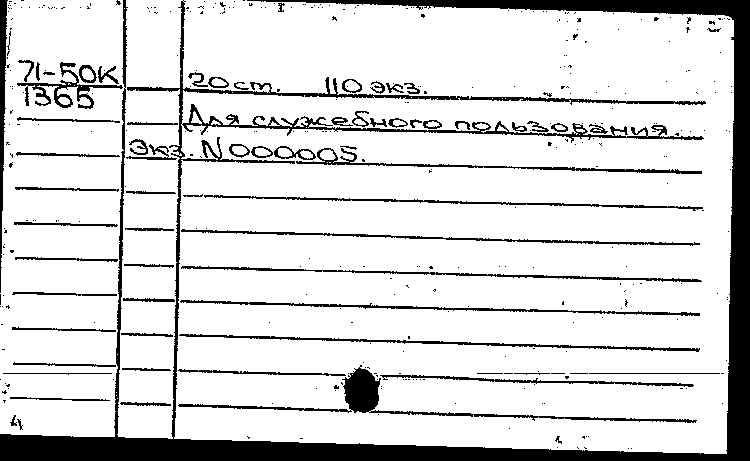 71-50К
1365
20 ст. 110 экз.
Для служебного пользования.
Экз. N000005.